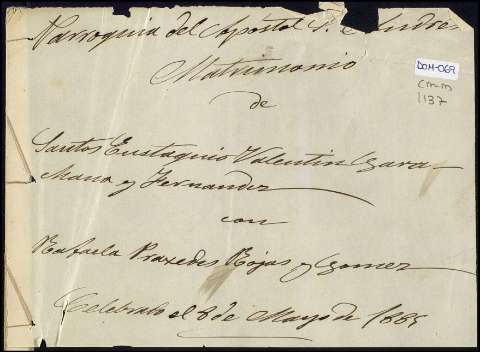 Parroquia del Apostol S. Andres
Matrimonio
DOM-069
CM-M
1137
de
Santos Eustaquio Valentin Gara-
Mana y Fernandez
con
Rafaela Praxedes Rojas y Gomez
Celebrado el 8 de Mayo de 1885